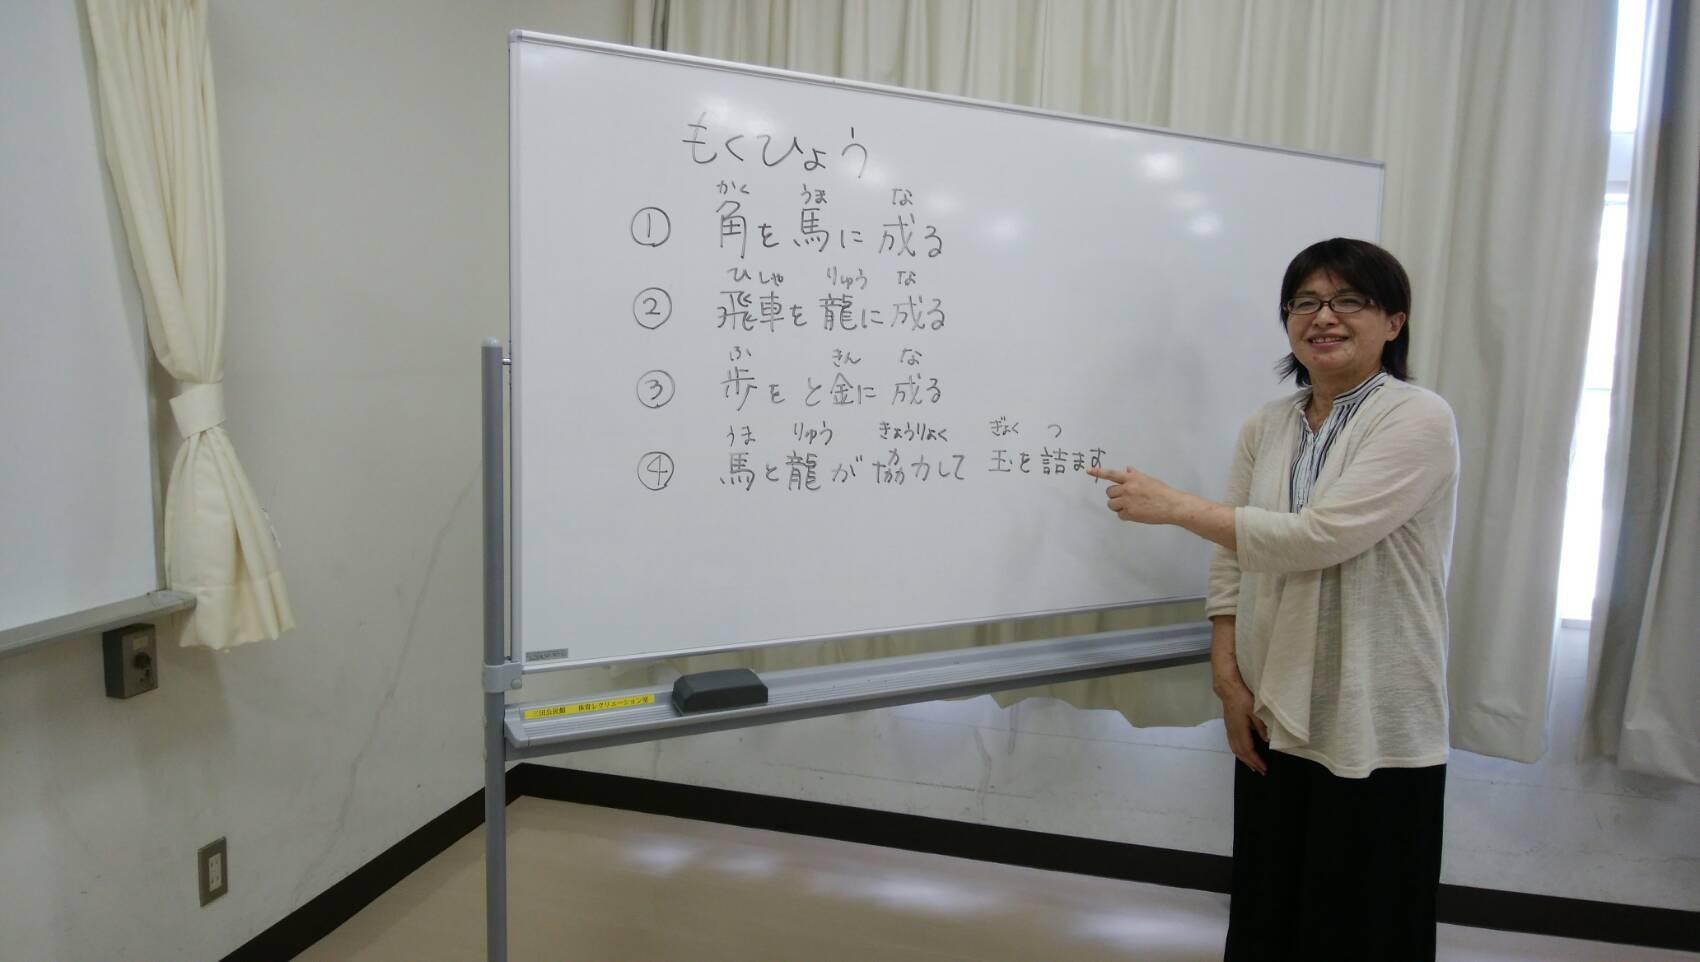 もくひょう
かく うま な
① 角を馬に成る
ひしゃ りゅう な
② 飛車を龍に成る
ふ きん な
③ 歩をと金に成る
うま りゅう きょうりょく ぎょく つ
④ 馬と龍が協力して 玉を詰ます
三田公民館 体育レクリエーション室